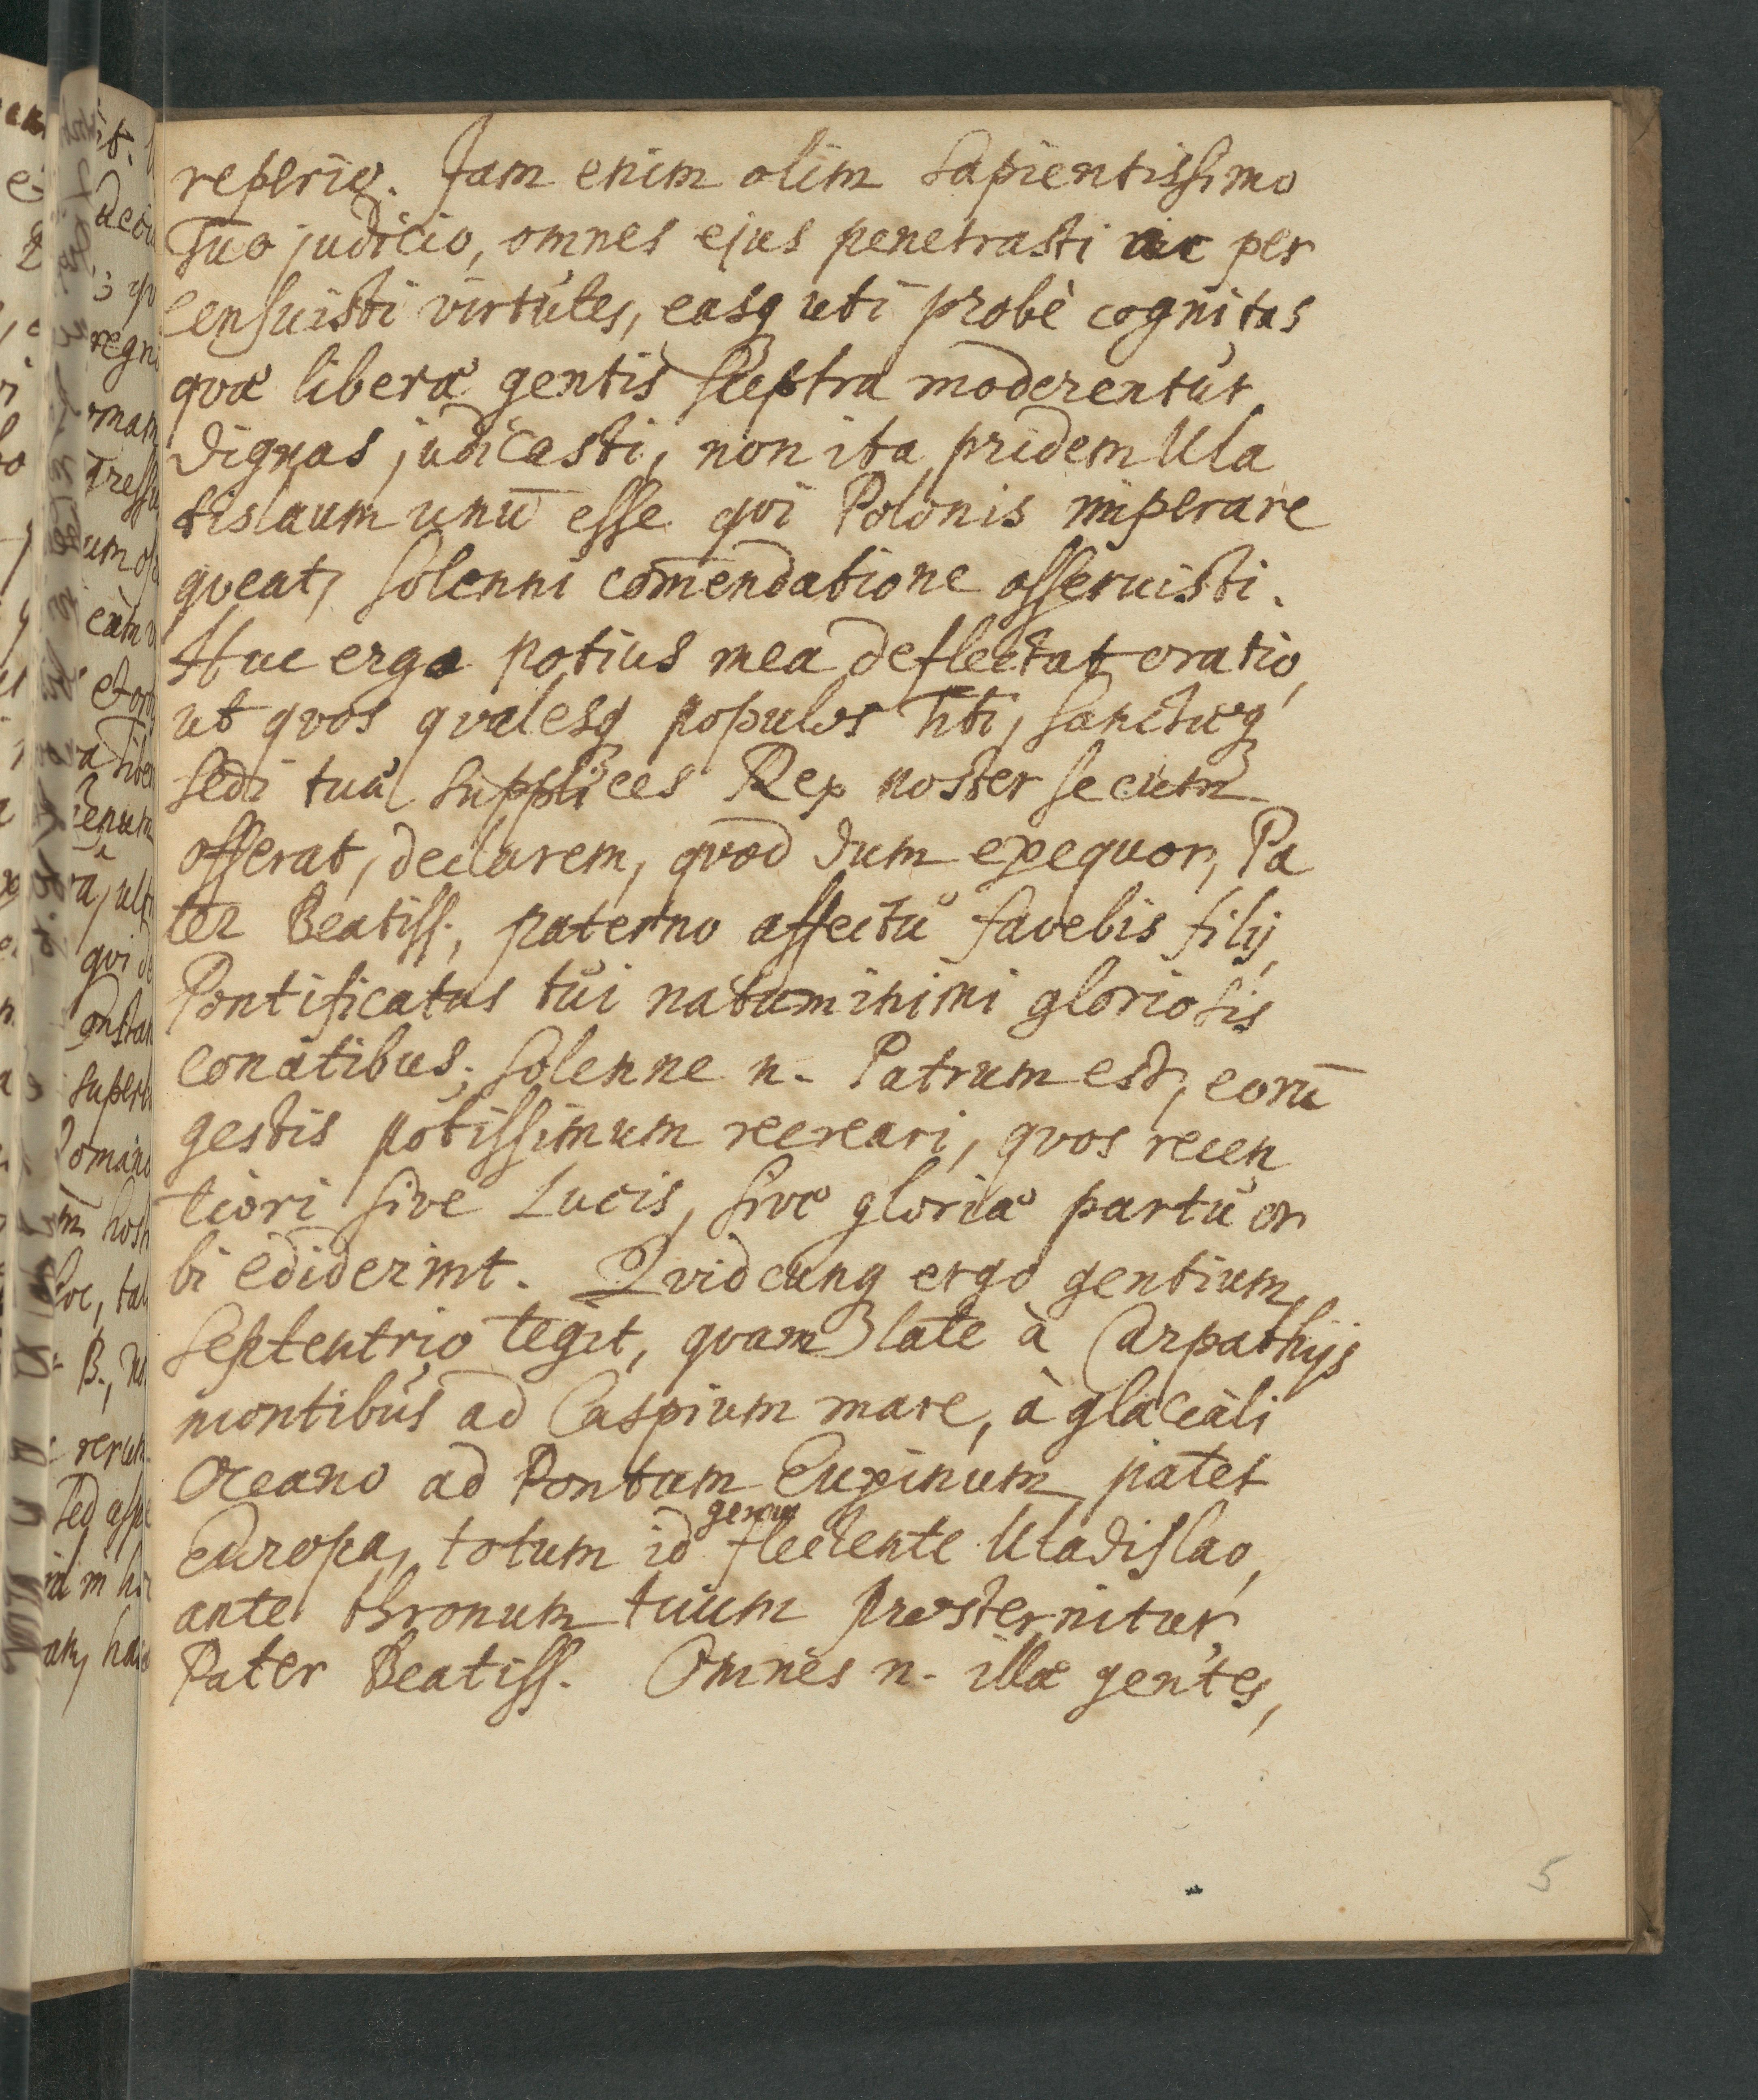 reperio. Jam enim olim sapientissimo
Tuo judicio, omnes ejus penetrasti ac per
censuisti virtutes, easq uti probè cognitas
qvæ liberæ gentis sceptra moderentur
dignas judicasti, non ita pridem Ula
dislaum unū esse qvi Polonis imperare
qveat, solenni com̄endatione asseruisti.
Huc ergo potius mea deflectat oratio,
ut qvos qvalesq populos Tibi, sanctæq
sedi tuæ supplices Rex noster secum
offerat, declarem, qvod dum exequor, Pa
ter Beatiss., paterno affectu favebis filij,
Pontificatus tui natu minimi gloriosis
conatibus; solenne n. Patrum est, eorū
gestis potissimum recreari, qvos recen
tiori sive Lucis, sive gloriæ partu or
bi ediderint. Qvidcunq ergo gentium
septentrio tegit, qvam late à Carpathijs
montibus ad Caspium mare, à glaciali
Oceano ad Pontum Euxinum patet
genua
Europa, totum id flectente Uladislao,
ante thronum tuum prosternitur
Pater Beatiss. Omnes n. illæ gentes,
5